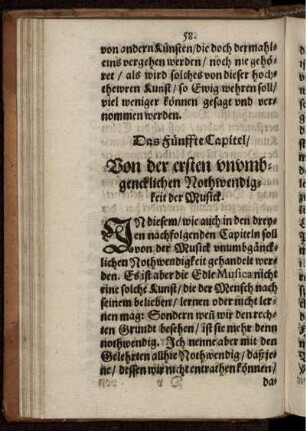 58.
von andern Künsten/die doch dermahl-
eins vergehen werden/ noch nie gehö-
ret/ als wird solches von dieser hoch-
thewren Kunst/ so Ewig wehren soll/
viel weniger können gesagt vnd ver-
nommen werden.
Das Fünffte Capitel/
Von der ersten vnvmb-
gencklichen Nothwendig-
keit der Musick.
IN diesem/ wie auch in den drey-
en nachfolgenden Capiteln soll
von der Musick vnumbgänck-
lichen Nothwendigkeit gehandelt wer-
den. Es ist aber die Edle Musica nicht
eine solche Kunst/ die der Mensch nach
seinem belieben/ lernen oder nicht ler-
nen mag: Sondern weñ wir den rech-
ten Grundt besehen/ ist sie mehr denn
nothwendig. Ich nenne aber mit den
Gelehrten allhie Nothwendig/ daß je-
ne/ dessen wir nicht entrathen können/
da-